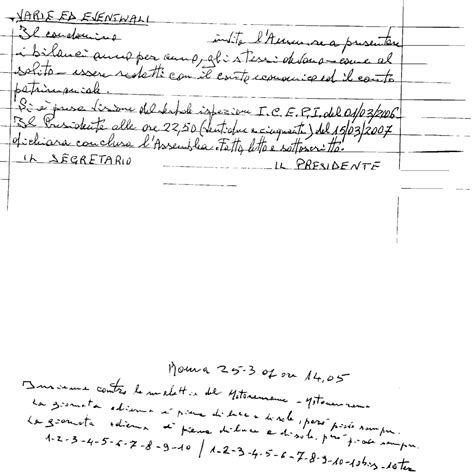 VARIE ED EVENTUALI
Il condomino invita l'Amm.re a presentare
i bilanci anno per anno, gli stessi devono - come al
solito - essere redatti con il conto economico ed il conto
patrimoniale.
Si è presa visione del verbale ispezione I.C.E.P.I. del 01/03/2006
Il Presidente alle ore 22,50 (ventidue e cinquanta) del 15/03/2007
dichiara conclusa l'Assemblea. Fatto, letto e sottoscritto.
IL SEGRETARIO IL PRESIDENTE
Roma 25-3 07 ore 14,05
Insieme contro le malattie del
La giornata odierna è piena di luce e di sole, però può sempre
La giornata odierna è piena di luce e di sole, però può sempre
1-2-3-4-5-6-7-8-9-10 / 1-2-3-4-5-6-7-8-9-10-10bis-10ter